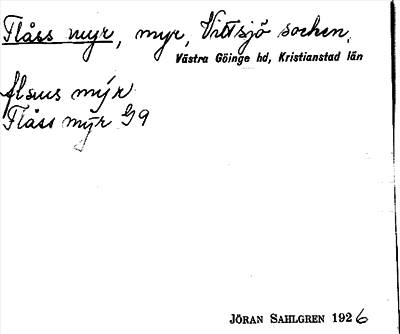 Flåss myr, myr, Vittsjö socken,
Västra Göinge hd, Kristianstad län
flåss mýr
Flåss myr G9
JÖRAN SAHLGREN 1926